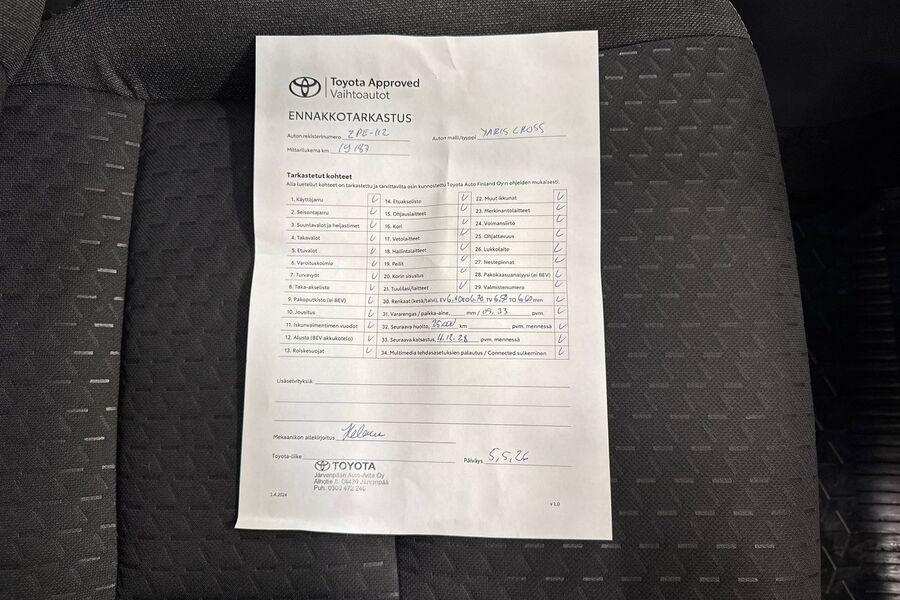 Toyota Approved
Vaihtoautot
ENNAKKOTARKASTUS
Auton rekisterinumero ZPE-112
Auton malli/tyyppi YARIS CROSS
Mittarilukema km 19 187
Tarkastetut kohteet
Alla luetellut kohteet on tarkastettu ja tarvittavilta osin kunnostettu Toyota Auto Finland Oy:n ohjeiden mukaisesti.
1. Käyttöjarru
2. Seisontajarru
3. Suuntavalot ja heijastimet
4. Takavalot
5. Etuvalot
6. Varoituskolmio
7. Turvavyöt
8. Taka-akselisto
9. Pakoputkisto (ei BEV)
10. Jousitus
11. Iskunvaimentimien vuodot
12. Alusta (BEV akkukotelo)
13. Roiskesuojat
14. Etuakselisto
15. Ohjauslaitteet
16. Kori
17. Vetolaitteet
18. Hallintalaitteet
19. Peilit
20. Korin sisustus
21. Tuulilasi/laitteet
22. Muut ikkunat
23. Merkinantolaitteet
24. Voimansiirto
25. Ohjattavuus
26. Lukkolaite
27. Nestepinnat
28. Pakokaasuanalyysi (ei BEV)
29. Valmistenumero
30. Renkaat (kesä/talvi), EV 6.40 EO 6.70 TV 6.50 TO 6.60 mm
31. Vararengas / paikka-aine, mm / 09.33 pvm.
32. Seuraava huolto, 25000 km pvm. mennessä
33. Seuraava katsastus, 4.12.28 pvm. mennessä
34. Multimedia tehdasasetuksien palautus / Connected sulkeminen
Lisäselvityksiä:
Mekaanikon allekirjoitus
Toyota-liike
Päiväys 5,5,26
TOYOTA
Järvenpään Auto-Arita Oy
Alhotie 8, 04430 Järvenpää
Puh. 0300 472 240
1.4.2024
v 1.0